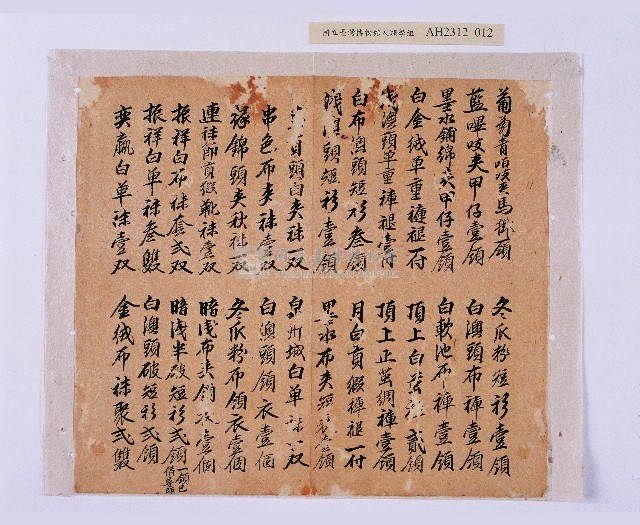 國立臺灣博物館人類學組 AH2312_012
葡萄青嗶吱夾馬褂壹領
藍嗶吱夾甲仔壹領
墨水鋪綿夾甲仔壹領
白金絨单重褲褪一付
淺澳頭单重褲褪壹付
白布澳頭短衫叁領
淺澳頭短衫壹領
頭白夾袜一双
串色布夾袜壹双
綠錦頭夾秋袜双
連袜節貢緞靴袜壹双
振祥白布袜套弍双
振祥白单袜叁雙
奕贏白单袜壹双
冬瓜粉短衫壹領
白澳頭布褲壹領
白軟池布褲壹領
頂上白褲貳領
頂上正茧綢褲壹領
月白貢緞褲褪一付
墨水布夾短壹領
泉州城白单袜双
白澳頭領衣壹個
冬瓜粉布領衣壹個
暗淺布夾領衣壹個
暗淺半破短衫弍領一領已借
白澳頭破短衫弍領
金絨布袜聚弍雙